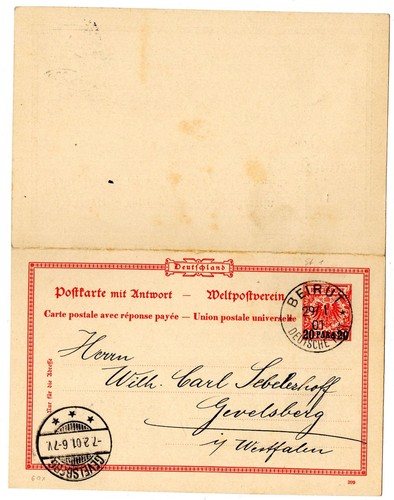 Deutschland
Postkarte mit Antwort — Weltpostverein
Carte postale avec réponse payée — Union postale universelle
BEIRUT
29/1
01
DEUTSCHE
20 PARA 20
Nur für die Adresse
Herrn
Wilh. Carl Sebelerhoff
Gevelsberg
i/ Westfalen
GEVELSBERG
-7.2.01.6-7V.